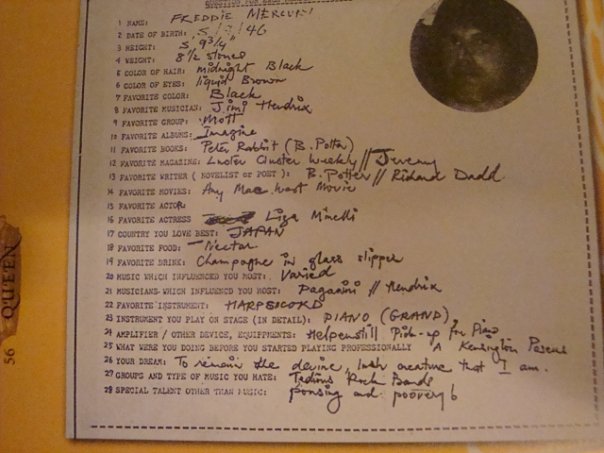 1 NAME: FREDDIE MERCURY
2 DATE OF BIRTH: 5/ /46
3 HEIGHT: 5, 9 3/4"
4 WEIGHT: 8 1/2 stones
5 COLOR OF HAIR: midnight Black
6 COLOR OF EYES: liquid Brown
7 FAVORITE COLOR: Black
8 FAVORITE MUSICIAN: Jimi Hendrix
9 FAVORITE GROUP: Mott
10 FAVORITE ALBUMS: Imagine
11 FAVORITE BOOKS: Peter Rabbit (B. Potter)
12 FAVORITE MAGAZINE: Cluster Weekly // Jeremy
13 FAVORITE WRITER (NOVELIST or POET): B. Potter // Richard Dadd
14 FAVORITE MOVIES: Any Mae West Movie
15 FAVORITE ACTOR
16 FAVORITE ACTRESS Liza Minelli
17 COUNTRY YOU LOVE BEST: JAPAN
18 FAVORITE FOOD: Nectar
19 FAVORITE DRINK: Champagne in glass slipper
20 MUSIC WHICH INFLUENCED YOU MOST: Varied
21 MUSICIANS WHICH INFLUENCED YOU MOST: Paganini // Hendrix
22 FAVORITE INSTRUMENT: HARPSICORD
23 INSTRUMENT YOU PLAY ON STAGE (IN DETAIL): PIANO (GRAND)
24 AMPLIFIER / OTHER DEVICE, EQUIPMENTS: Helpenstill Pick-up for Piano
25 WHAT WERE YOU DOING BEFORE YOU STARTED PLAYING PROFESSIONALLY A Kensington
26 YOUR DREAM: To remain the devine, lush creature that I am.
27 GROUPS AND TYPE OF MUSIC YOU HATE: Tedious Rock Bands
28 SPECIAL TALENT OTHER THAN MUSIC: Ponsing and
56 QUEEN